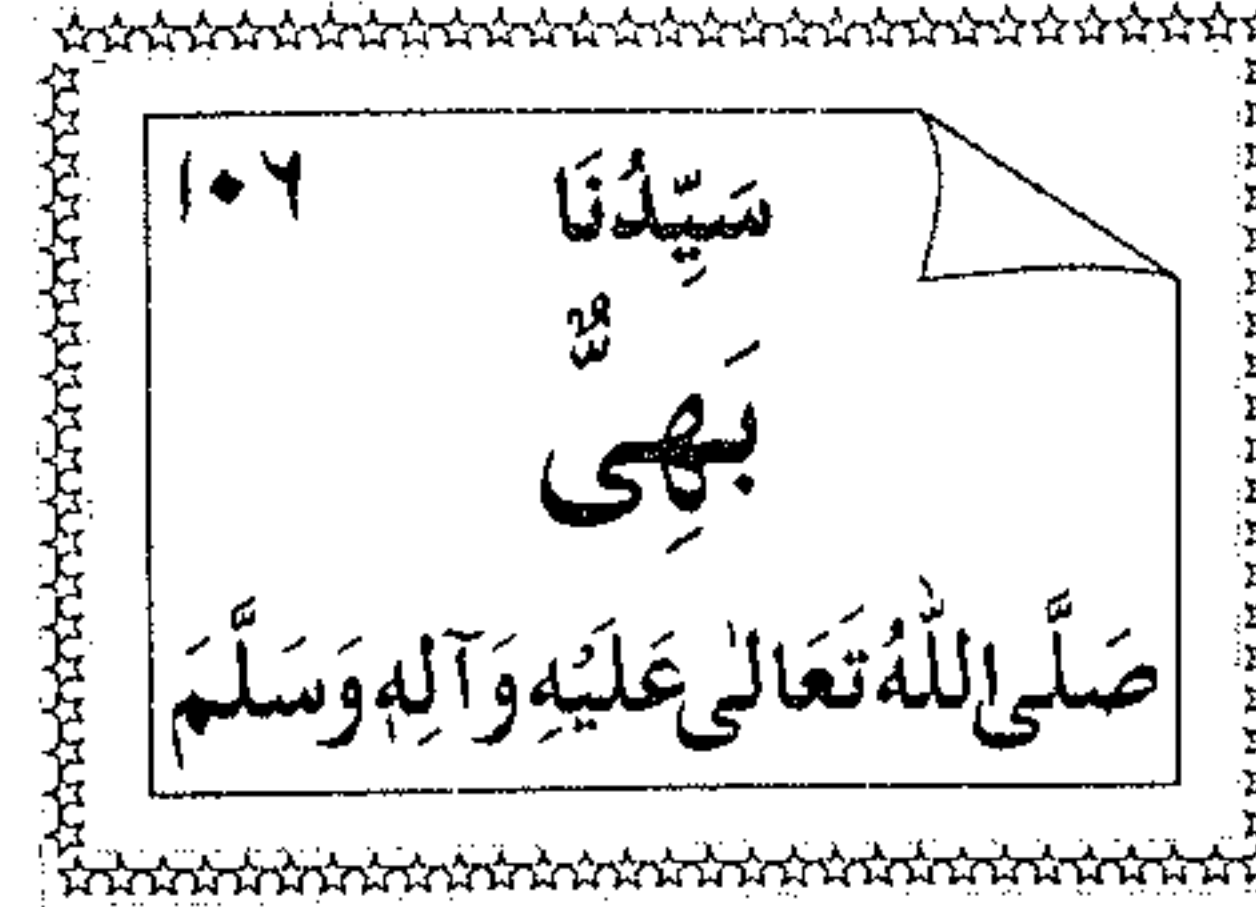 سَيِّدُنَا ۱۰۶
بَهِىٌّ
صَلَّى اللّٰهُ تَعَالٰى عَلَيْهِ وَآلِهٖ وَسَلَّمَ